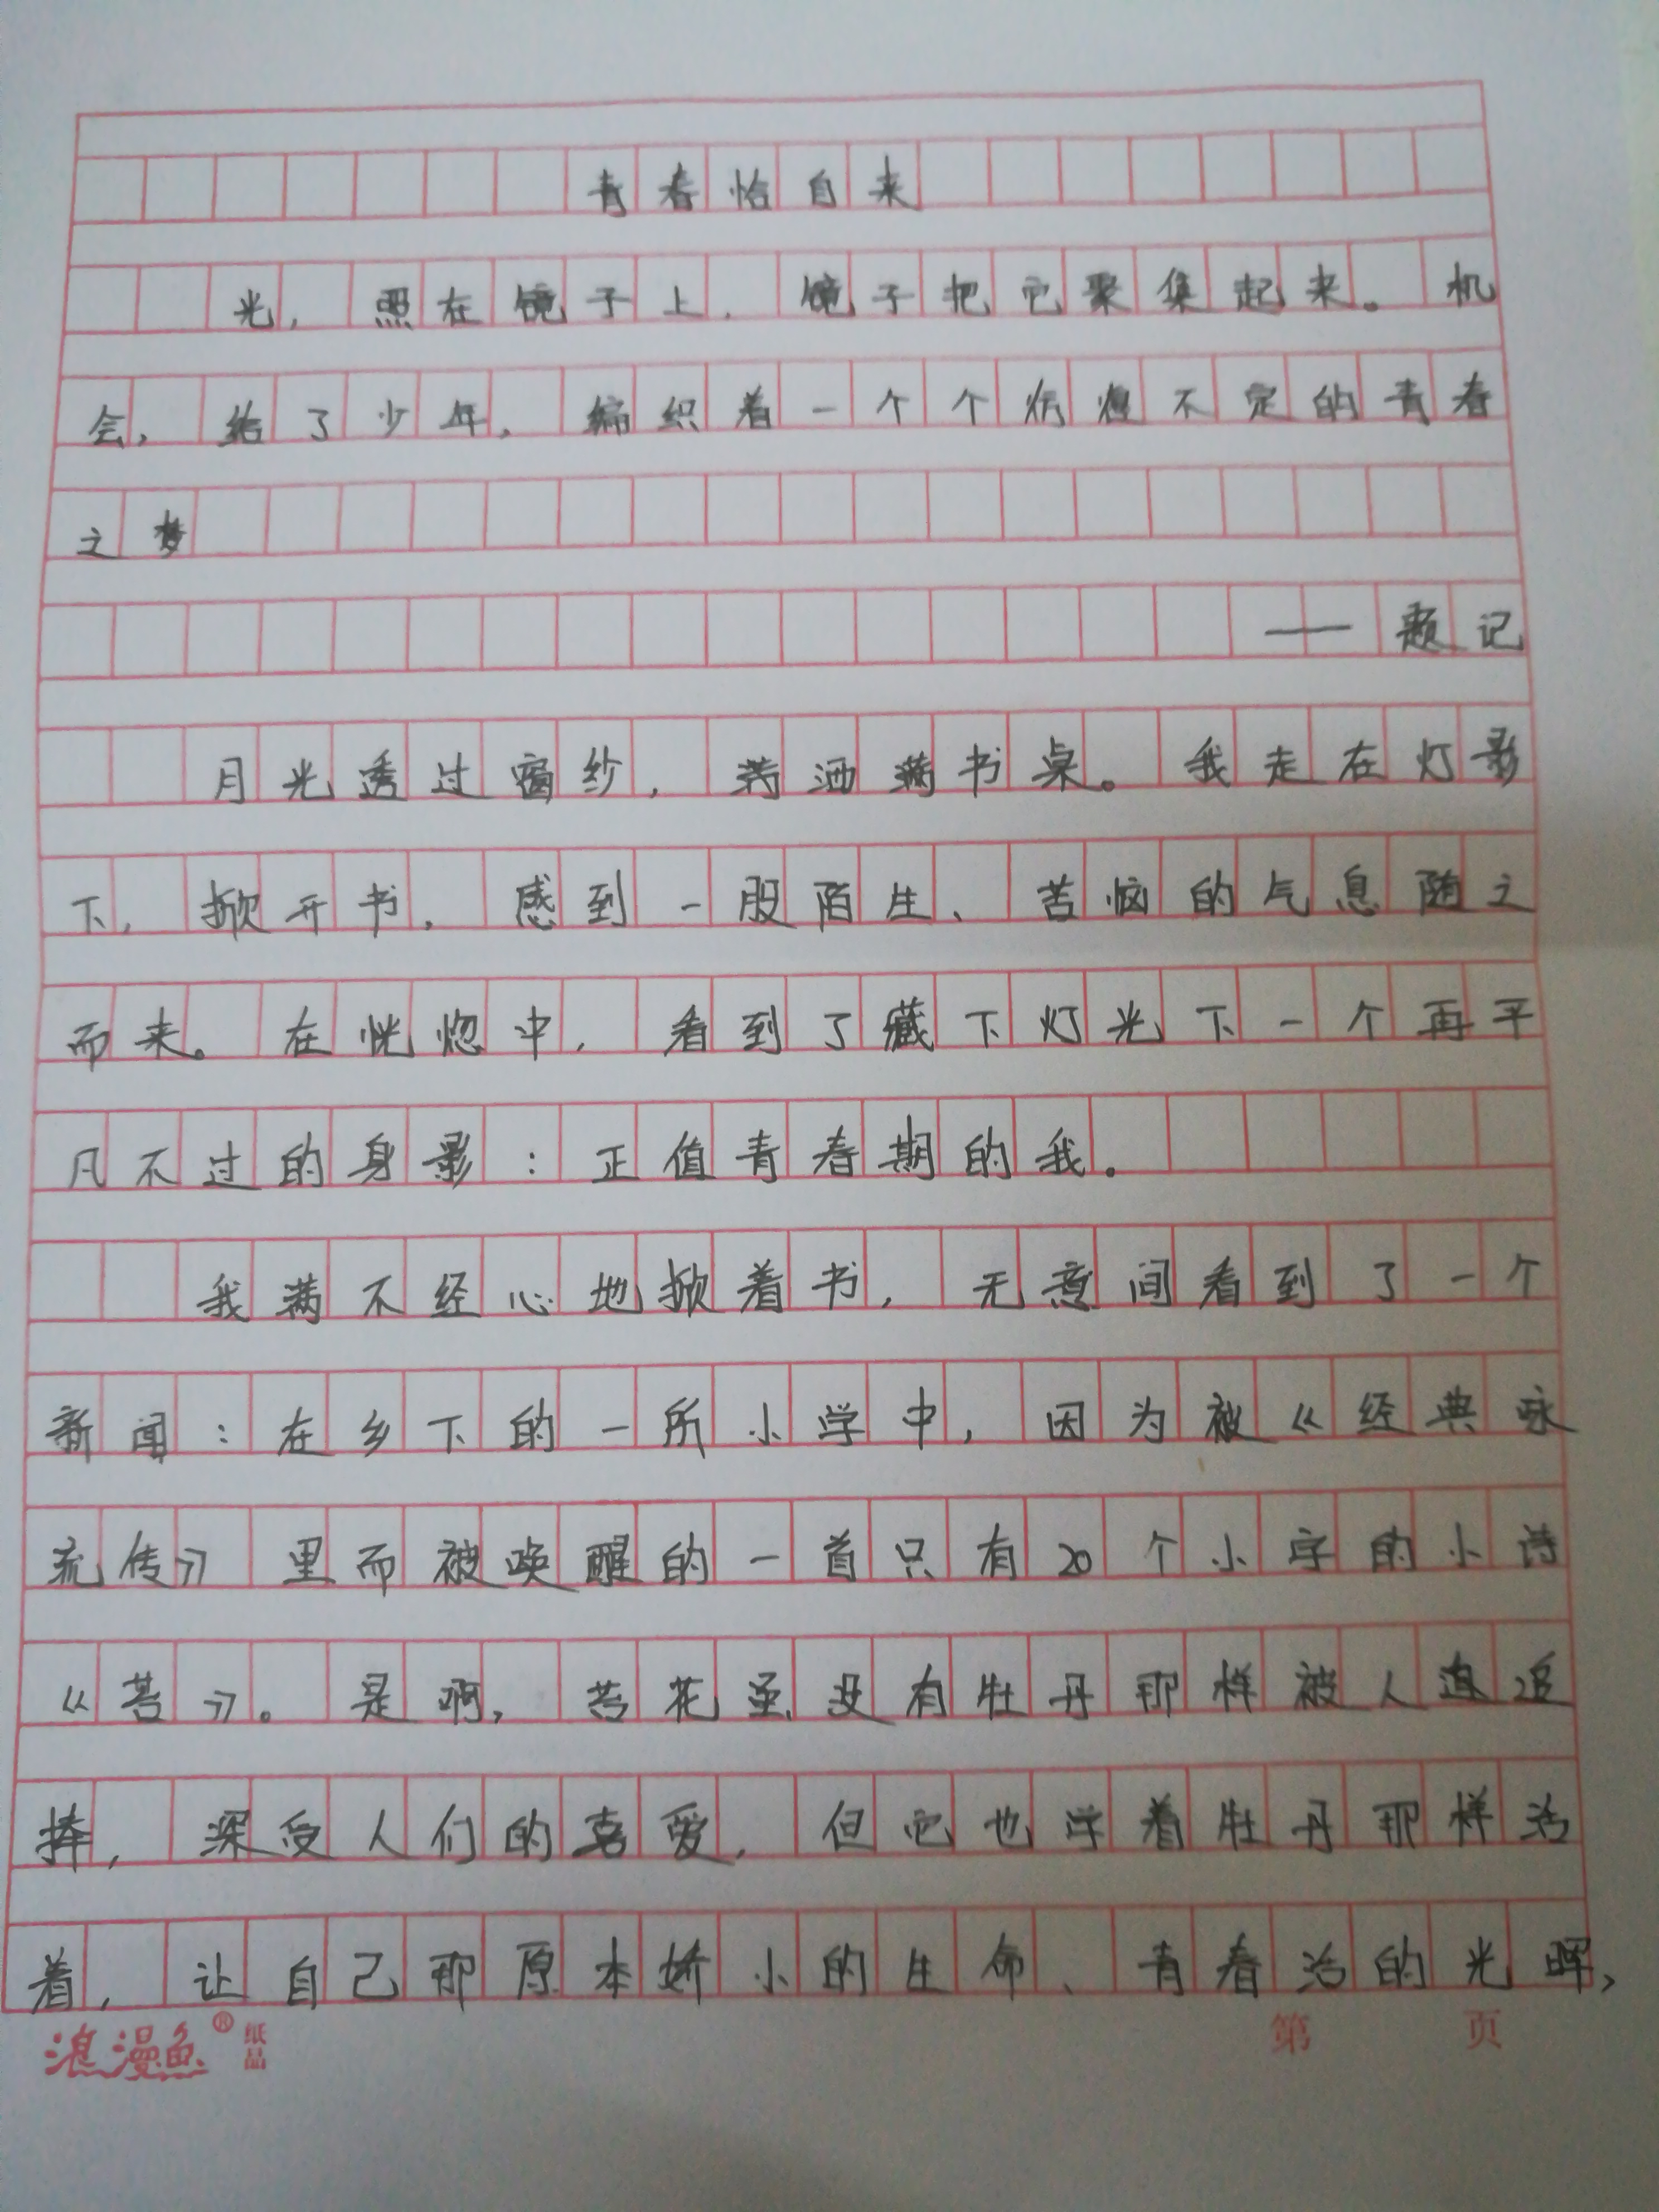 青春恰自来
光，照在镜子上，镜子把它聚集起来。机
会，给了少年，编织着一个个彷徨不定的青春
之梦
——题记
月光透过窗纱，满洒满书桌。我走在灯影
下，掀开书，感到一股陌生、苦恼的气息随之
而来。在恍惚中，看到了藏下灯光下一个再平
凡不过的身影：正值青春期的我。
我满不经心地掀着书，无意间看到了一个
新闻：在乡下的一所小学中，因为被《经典咏
流传》里而被唤醒的一首只有20个小字的小诗
《苔》。是啊，苔花虽没有牡丹那样被人追
捧，深受人们的喜爱，但它也学着牡丹那样活
着，让自己那原本娇小的生命、青春活的光晖，
浪漫鱼®纸品
第 页